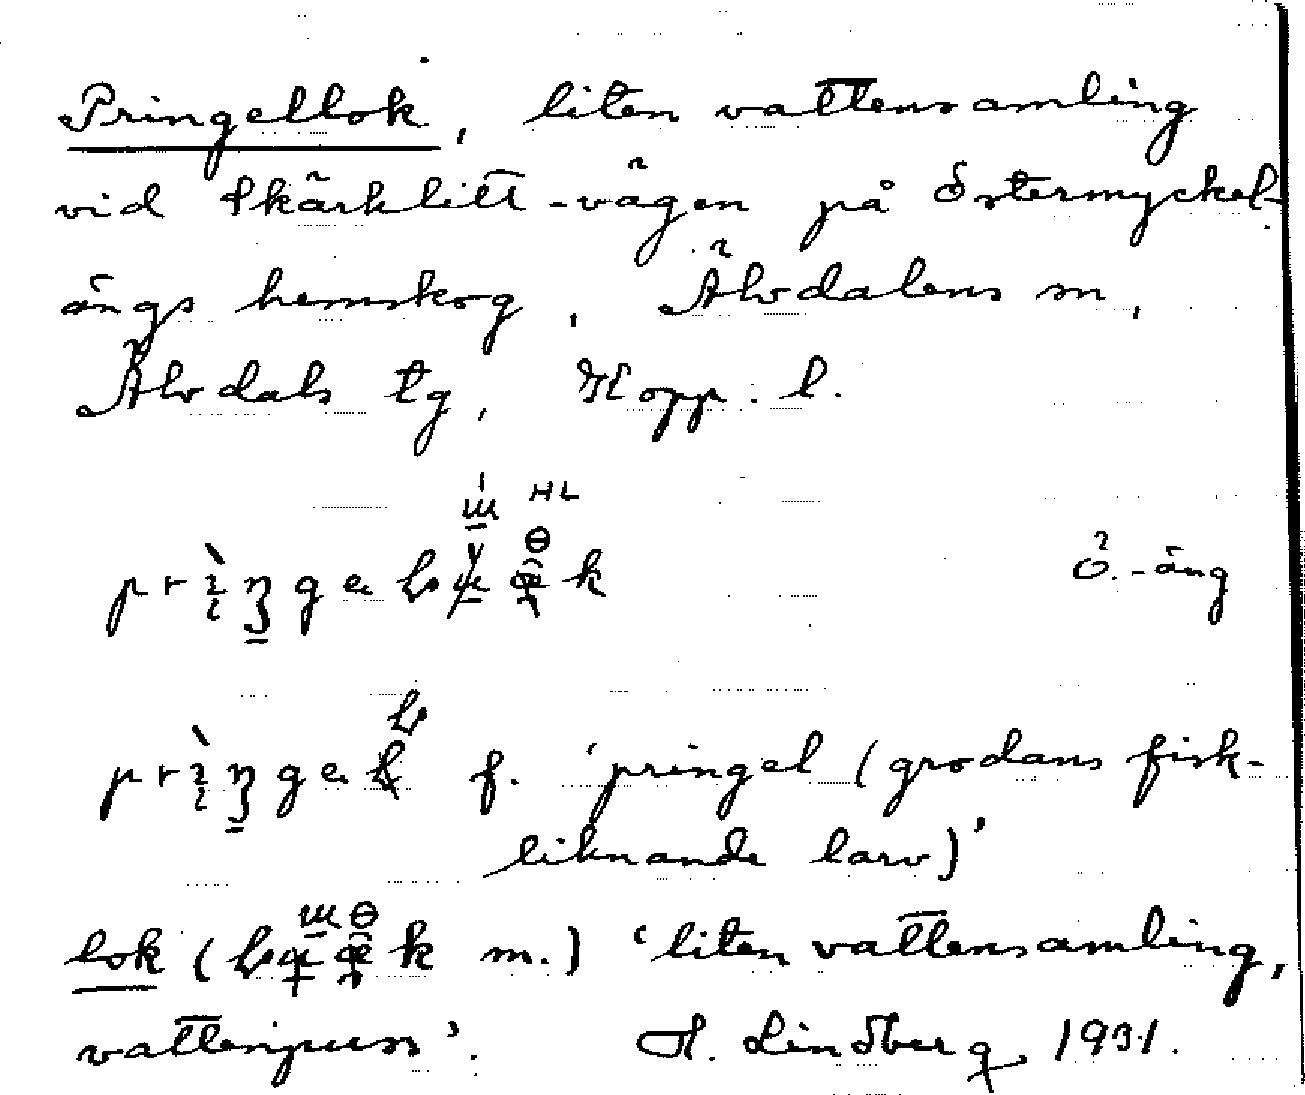 Pringellok, liten vattensamling
vid Skärklitt-vägen på Östermyckel-
ängs hemskog, Älvdalens sn,
Älvdals tg, Kopp. l.
HL
Ö.-äng
f. 'pringel (grodans fisk-
liknande larv)'
lok ( k m.) 'liten vattensamling,
vattenpuss'. H. Lindberg 1931.